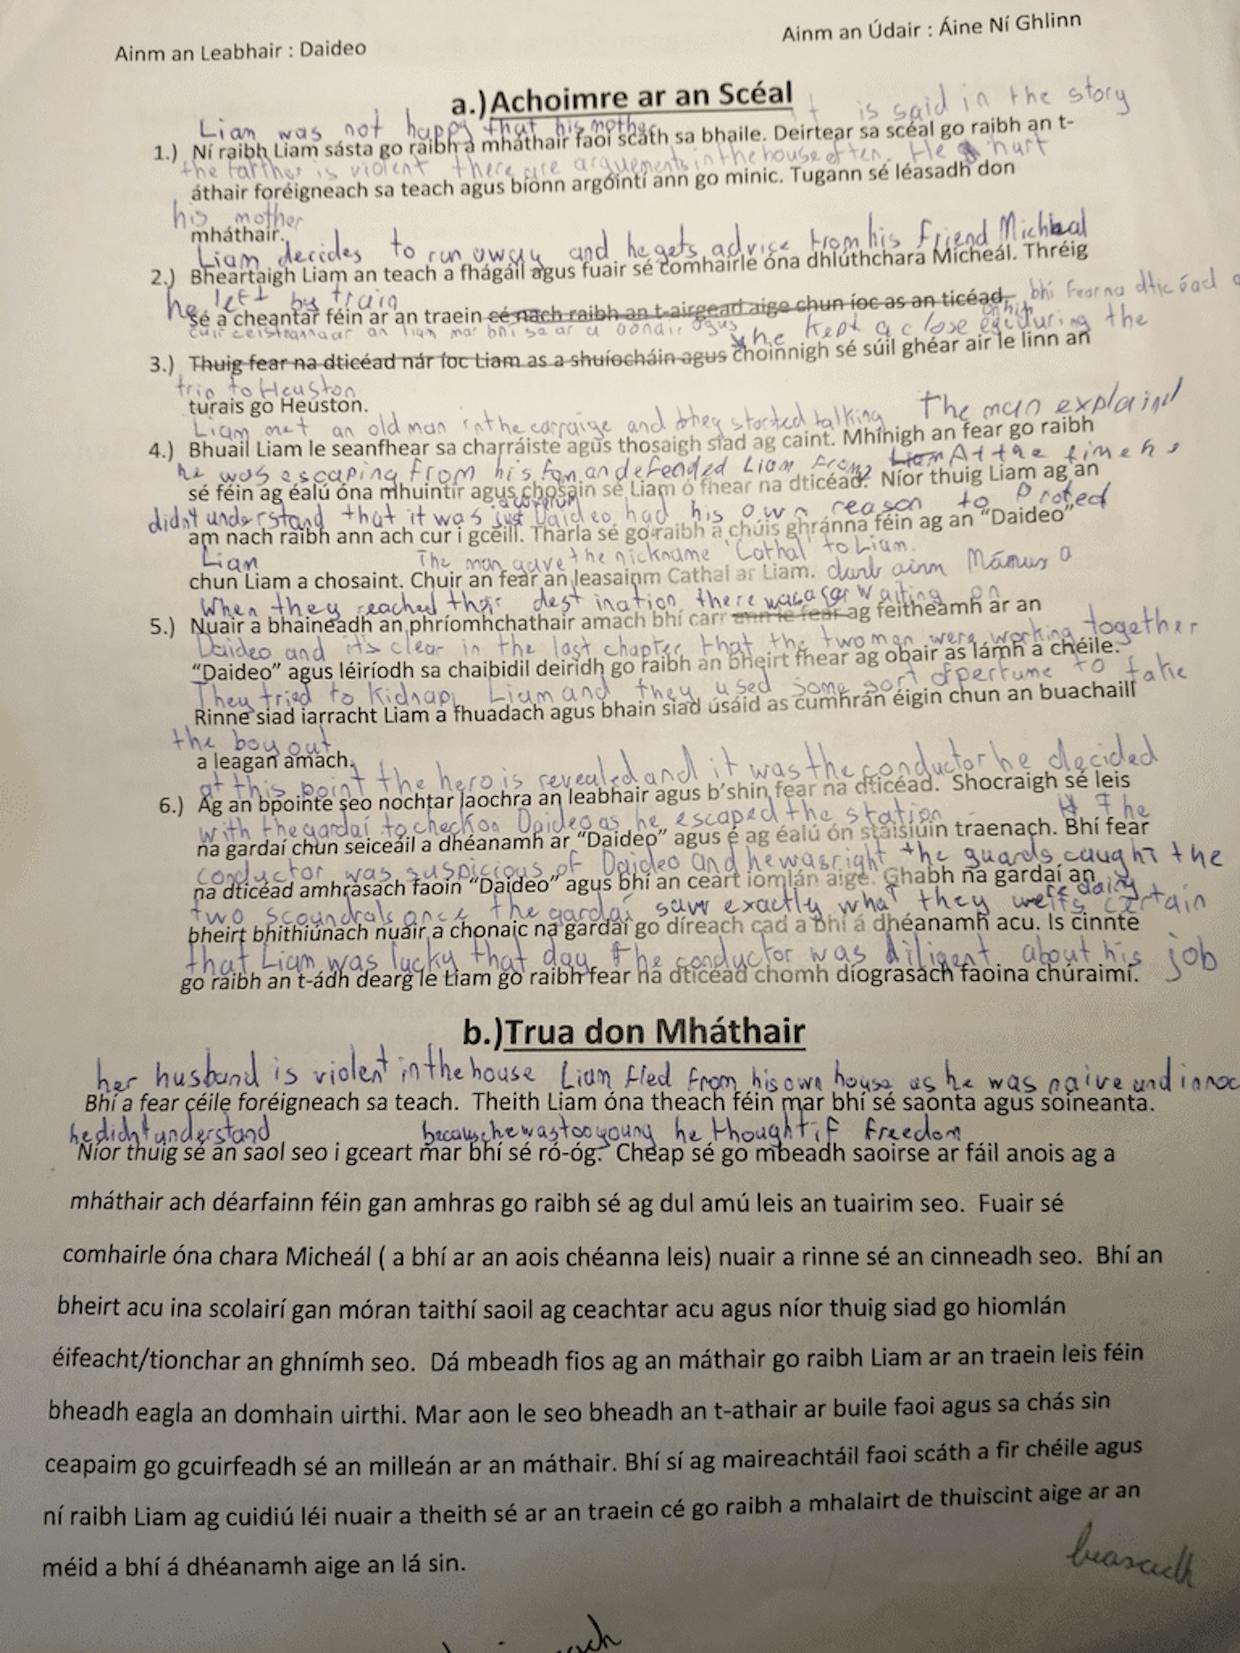 Ainm an Leabhair : Daideo
Ainm an Údair : Áine Ní Ghlinn
a.)Achoimre ar an Scéal
Liam was not happy that his mother is said in the story
1.) Ní raibh Liam sásta go raibh a mháthair faoi scáth sa bhaile. Deirtear sa scéal go raibh an t-
the farther is violent there are arguements in the house often. He hurt
áthair foréigneach sa teach agus bíonn argóintí ann go minic. Tugann sé léasadh don
his mother
mháthair.
Liam decides to run away and he gets advise from his friend Micheal
2.) Bheartaigh Liam an teach a fhágáil agus fuair sé comhairle óna dhlúthchara Micheál. Thréig
he left by train
sé a cheantar féin ar an traein cé nach raibh an t-airgead aige chun íoc as an ticéad. bhí fear na dticéad
cuir ceisteannaar an liam mar bhí sé ar a aonair agus he kept a close eye on him during the
3.) Thuig fear na dticéad nár íoc Liam as a shuíocháin agus choinnigh sé súil ghéar air le linn an
trip to Heuston
turais go Heuston.
Liam met an old man in the carraige and they started talking The man explaind
4.) Bhuail Liam le seanfhear sa charráiste agus thosaigh siad ag caint. Mhínigh an fear go raibh
he was escaping from his fam and defended Liam from Liam At the time he
sé féin ag éalú óna mhuintir agus chosain sé Liam ó fhear na dticéad. Níor thuig Liam ag an
didn't understand that it was just a coverup Daideo had his own reason to Proted
am nach raibh ann ach cur i gcéill. Tharla sé go raibh a chúis ghránna féin ag an “Daideo”
Lian The man gave the nickname 'Cathal' to Liam.
chun Liam a chosaint. Chuir an fear an leasainm Cathal ar Liam. darb ainm Mánus a
When they reached their destination there was a car waiting on
5.) Nuair a bhaineadh an phríomhchathair amach bhí carr ann le fear ag feitheamh ar an
Daideo and its clear in the last chapter that the two men were working together
“Daideo” agus léiríodh sa chaibidil deiridh go raibh an bheirt fhear ag obair as lámh a chéile.
They tried to kidnap Liam and they used some sort of perfume to take
Rinne siad iarracht Liam a fhuadach agus bhain siad úsáid as cumhrán éigin chun an buachaill
the boy out
a leagan amach.
at this point the hero is revealed and it was the conductor he decided
6.) Ag an bpointe seo nochtar laochra an leabhair agus b’shin fear na dticéad. Shocraigh sé leis
with the gardaí to check on Daideo as he escaped the station The
na gardaí chun seiceáil a dhéanamh ar “Daideo” agus é ag éalú ón stáisiúin traenach. Bhí fear
conductor was suspicious of Daideo and he was right the guards caught the
na dticéad amhrasach faoin “Daideo” agus bhí an ceart iomlán aige. Ghabh na gardaí an
two scoundrals once the gardaí saw exactly what they were doing its certain
bheirt bhithiúnach nuair a chonaic na gardaí go díreach cad a bhí á dhéanamh acu. Is cinnte
that Liam was lucky that day the conductor was diligent about his job
go raibh an t-ádh dearg le Liam go raibh fear na dticéad chomh díograsach faoina chúraimí.
b.)Trua don Mháthair
her husband is violent in the house Liam fled from his own house as he was naive and innoc
Bhí a fear céile foréigneach sa teach. Theith Liam óna theach féin mar bhí sé saonta agus soineanta.
he didn't understand because he was too young he thought if freedom
Níor thuig sé an saol seo i gceart mar bhí sé ró-óg. Cheap sé go mbeadh saoirse ar fáil anois ag a
mháthair ach déarfainn féin gan amhras go raibh sé ag dul amú leis an tuairim seo. Fuair sé
comhairle óna chara Micheál ( a bhí ar an aois chéanna leis) nuair a rinne sé an cinneadh seo. Bhí an
bheirt acu ina scolairí gan móran taithí saoil ag ceachtar acu agus níor thuig siad go hiomlán
éifeacht/tionchar an ghnímh seo. Dá mbeadh fios ag an máthair go raibh Liam ar an traein leis féin
bheadh eagla an domhain uirthi. Mar aon le seo bheadh an t-athair ar buile faoi agus sa chás sin
ceapaim go gcuirfeadh sé an milleán ar an máthair. Bhí sí ag maireachtáil faoi scáth a fir chéile agus
ní raibh Liam ag cuidiú léi nuair a theith sé ar an traein cé go raibh a mhalairt de thuiscint aige ar an
méid a bhí á dhéanamh aige an lá sin.